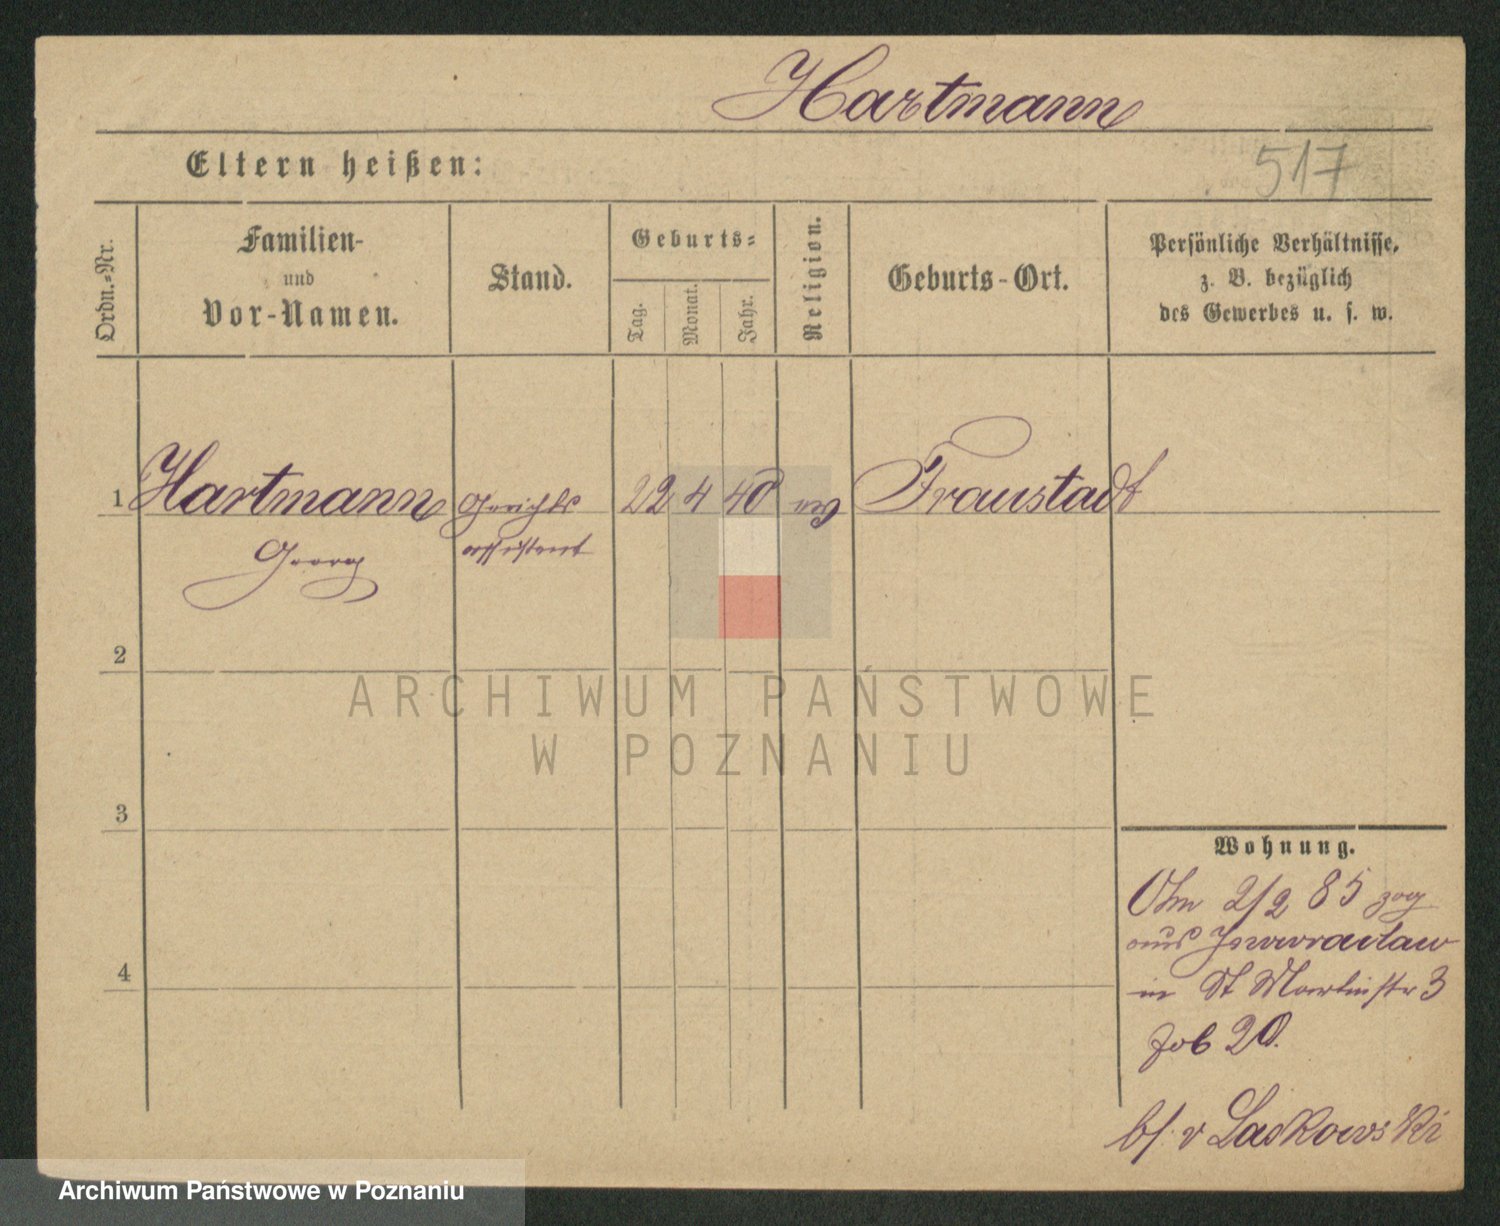 Hartmann
Eltern heißen:
517
Ordn.-Nr.
Familien-
und
Vor-Namen.
Stand.
Geburts-
Tag.
Monat.
Jahr.
Religion.
Geburts-Ort.
Persönliche Verhältnisse,
z. B. bezüglich
des Gewerbes u. s. w.
1 Hartmann Gerichts 22 4 40 ev Fraustadt
Georg assistent
2
ARCHIWUM PAŃSTWOWE
W POZNANIU
3
Wohnung.
2/2 85 zog
aus Inowraclaw
in St Martinstr 3
4
20.
v Laskowski
Archiwum Państwowe w Poznaniu